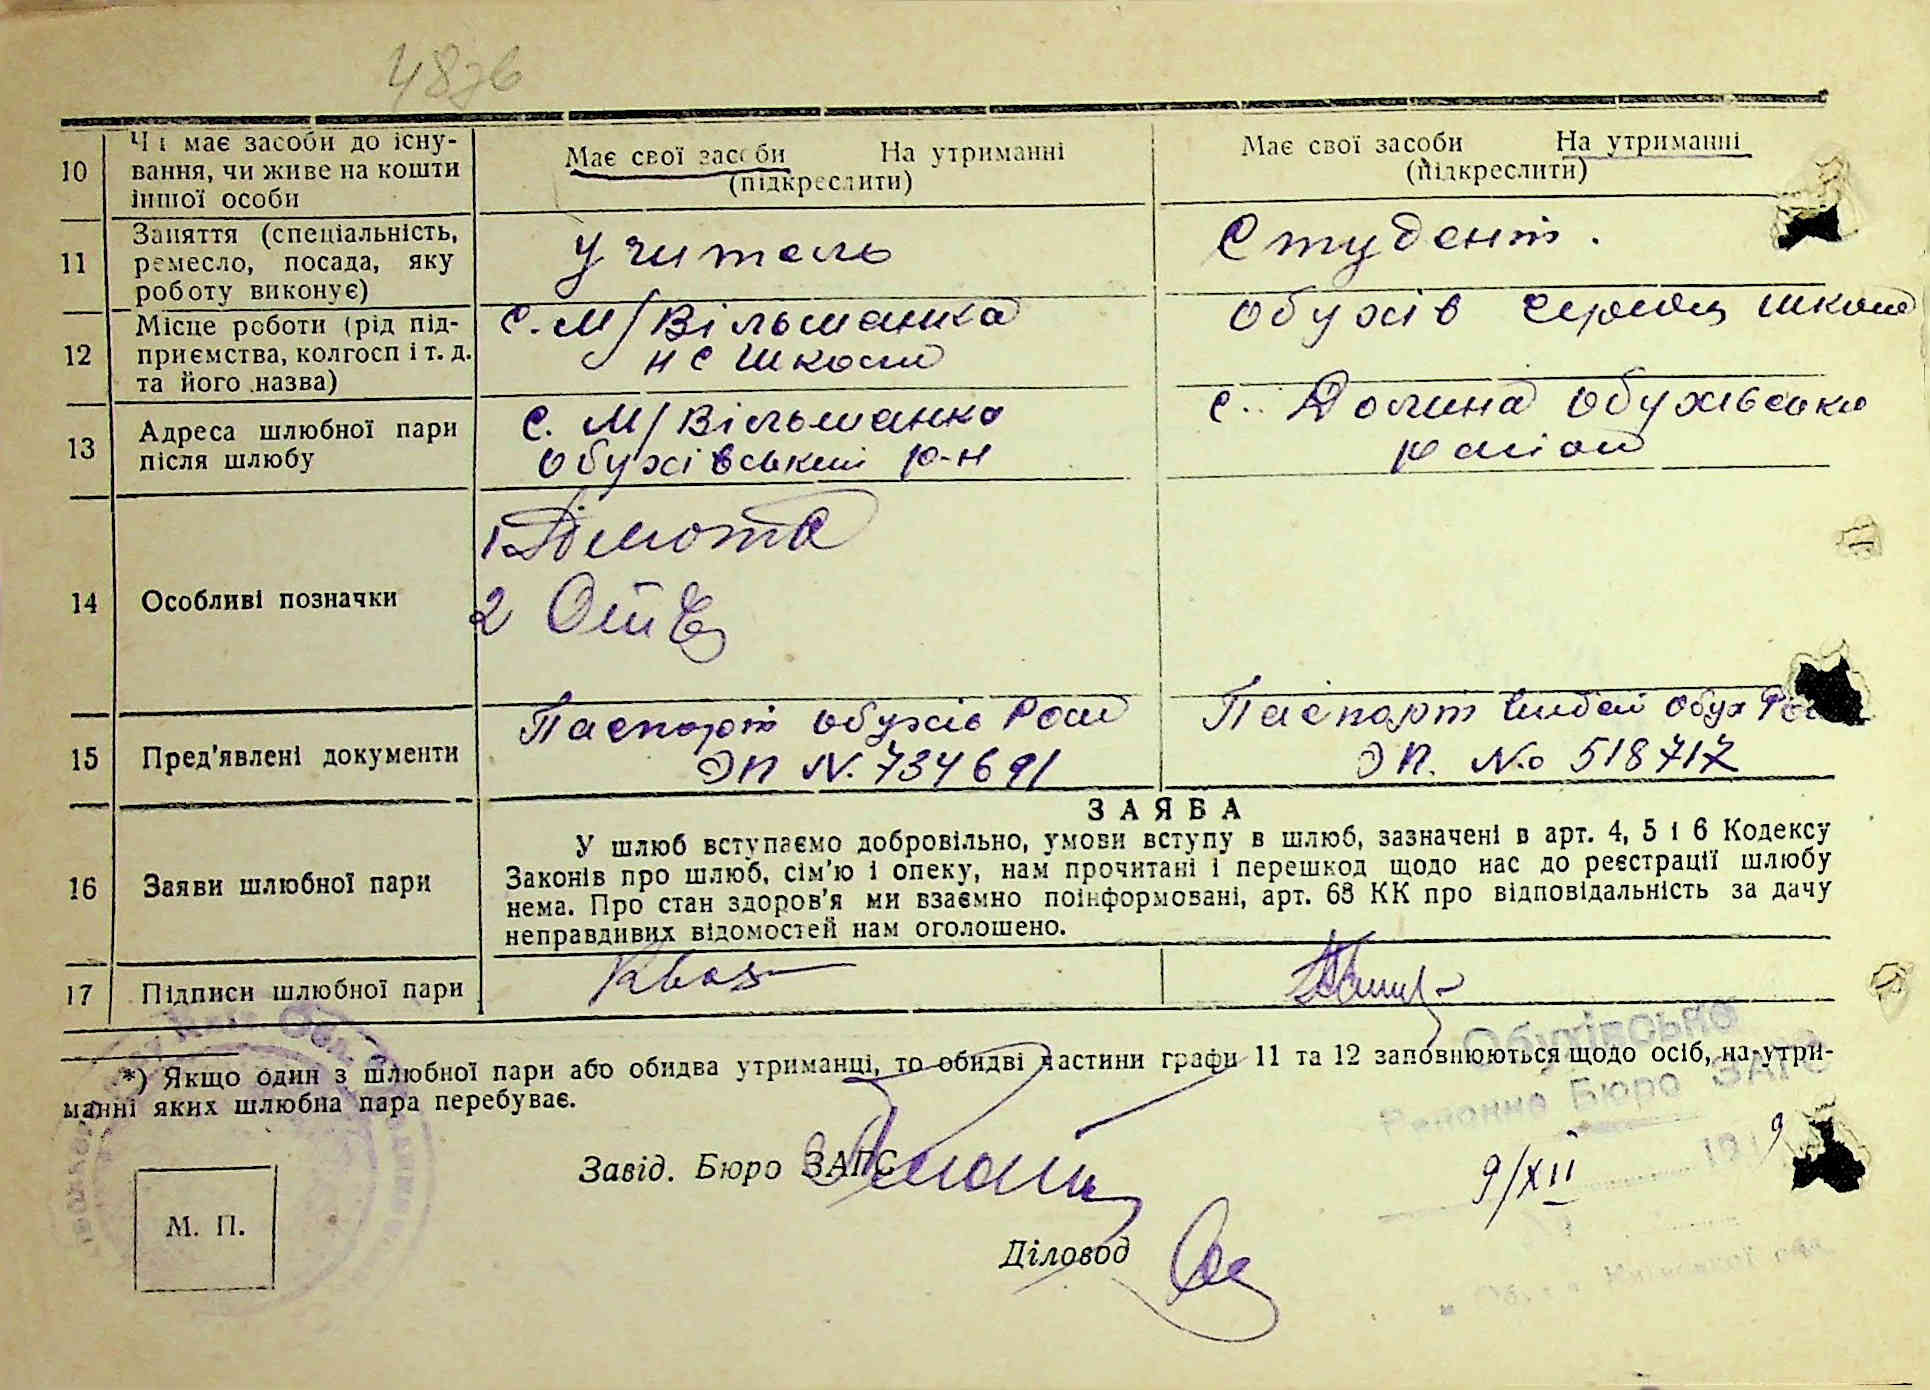 48зв
10 Чи має засоби до існу-
вання, чи живе на кошти
іншої особи
Має свої засоби На утриманні
(підкреслити)
Має свої засоби На утриманні
(підкреслити)
11 Заняття (спеціальність,
ремесло, посада, яку
роботу виконує)
Учитель
Студент.
12 Місце роботи (рід під-
приємства, колгосп і т. д.
та його назва)
с. М/Вільшанка
н с школи
Обухів школи
13 Адреса шлюбної пари
після шлюбу
с. М/Вільшанка
Обухівський р-н
с. Долина Обухівськ
район
14 Особливі позначки
1
2
15 Пред'явлені документи
Паспорт Обухів
ЭП N. 734691
Паспорт Обух
ЭП. № 518717
16 Заяви шлюбної пари
ЗАЯВА
У шлюб вступаємо добровільно, умови вступу в шлюб, зазначені в арт. 4, 5 і 6 Кодексу
Законів про шлюб, сім'ю і опеку, нам прочитані і перешкод щодо нас до реєстрації шлюбу
нема. Про стан здоров'я ми взаємно поінформовані, арт. 68 КК про відповідальність за дачу
неправдивих відомостей нам оголошено.
17 Підписи шлюбної пари
*) Якщо один з шлюбної пари або обидва утриманці, то обидві частини графи 11 та 12 заповнюються щодо осіб, на утри-
манні яких шлюбна пара перебуває.
Обухівське
Районне Бюро ЗАГС
Завід. Бюро ЗАГС
9/XII 19
М. П.
Діловод
Київської обл.